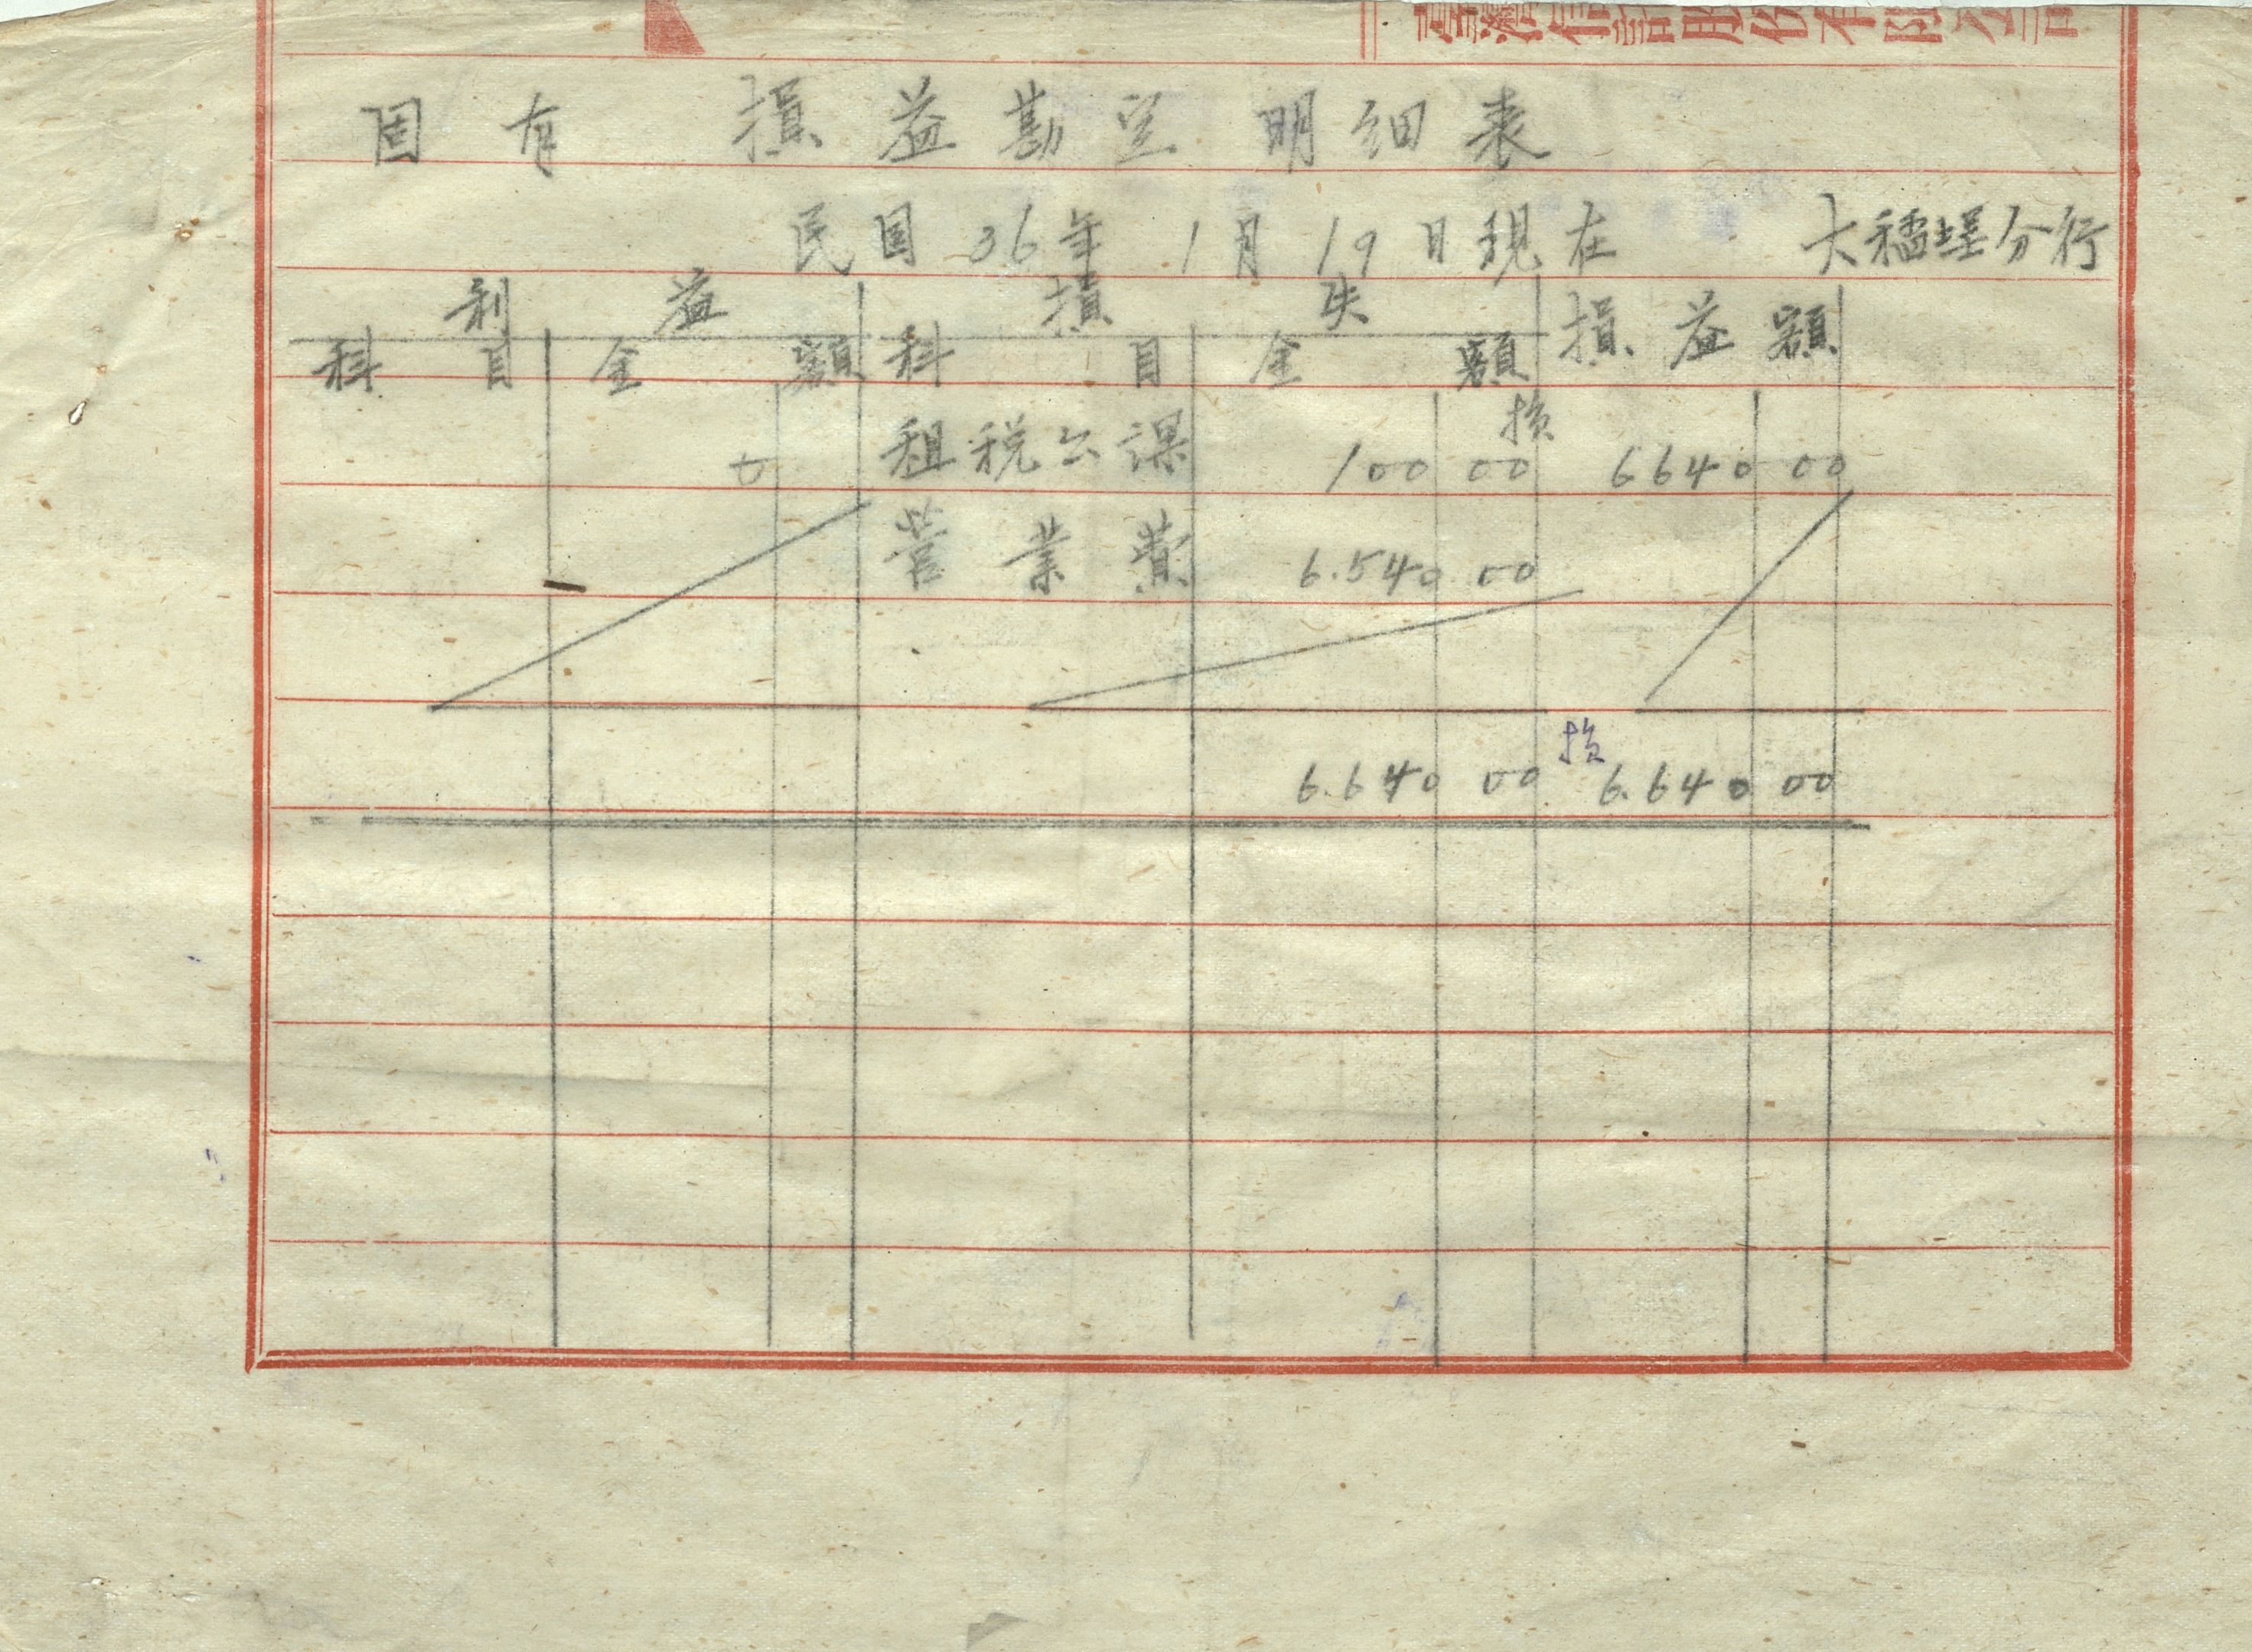 臺灣信託股份有限公司
固有 損益勘定 明細表
民国 36年 1月 19日現在 大稻埕分行
利益 損失 損益額
科目 金額 科目 金額
0 租税公課 100 00 損 6640 00
営業費 6.540 00
6.640 00 損 6.640 00